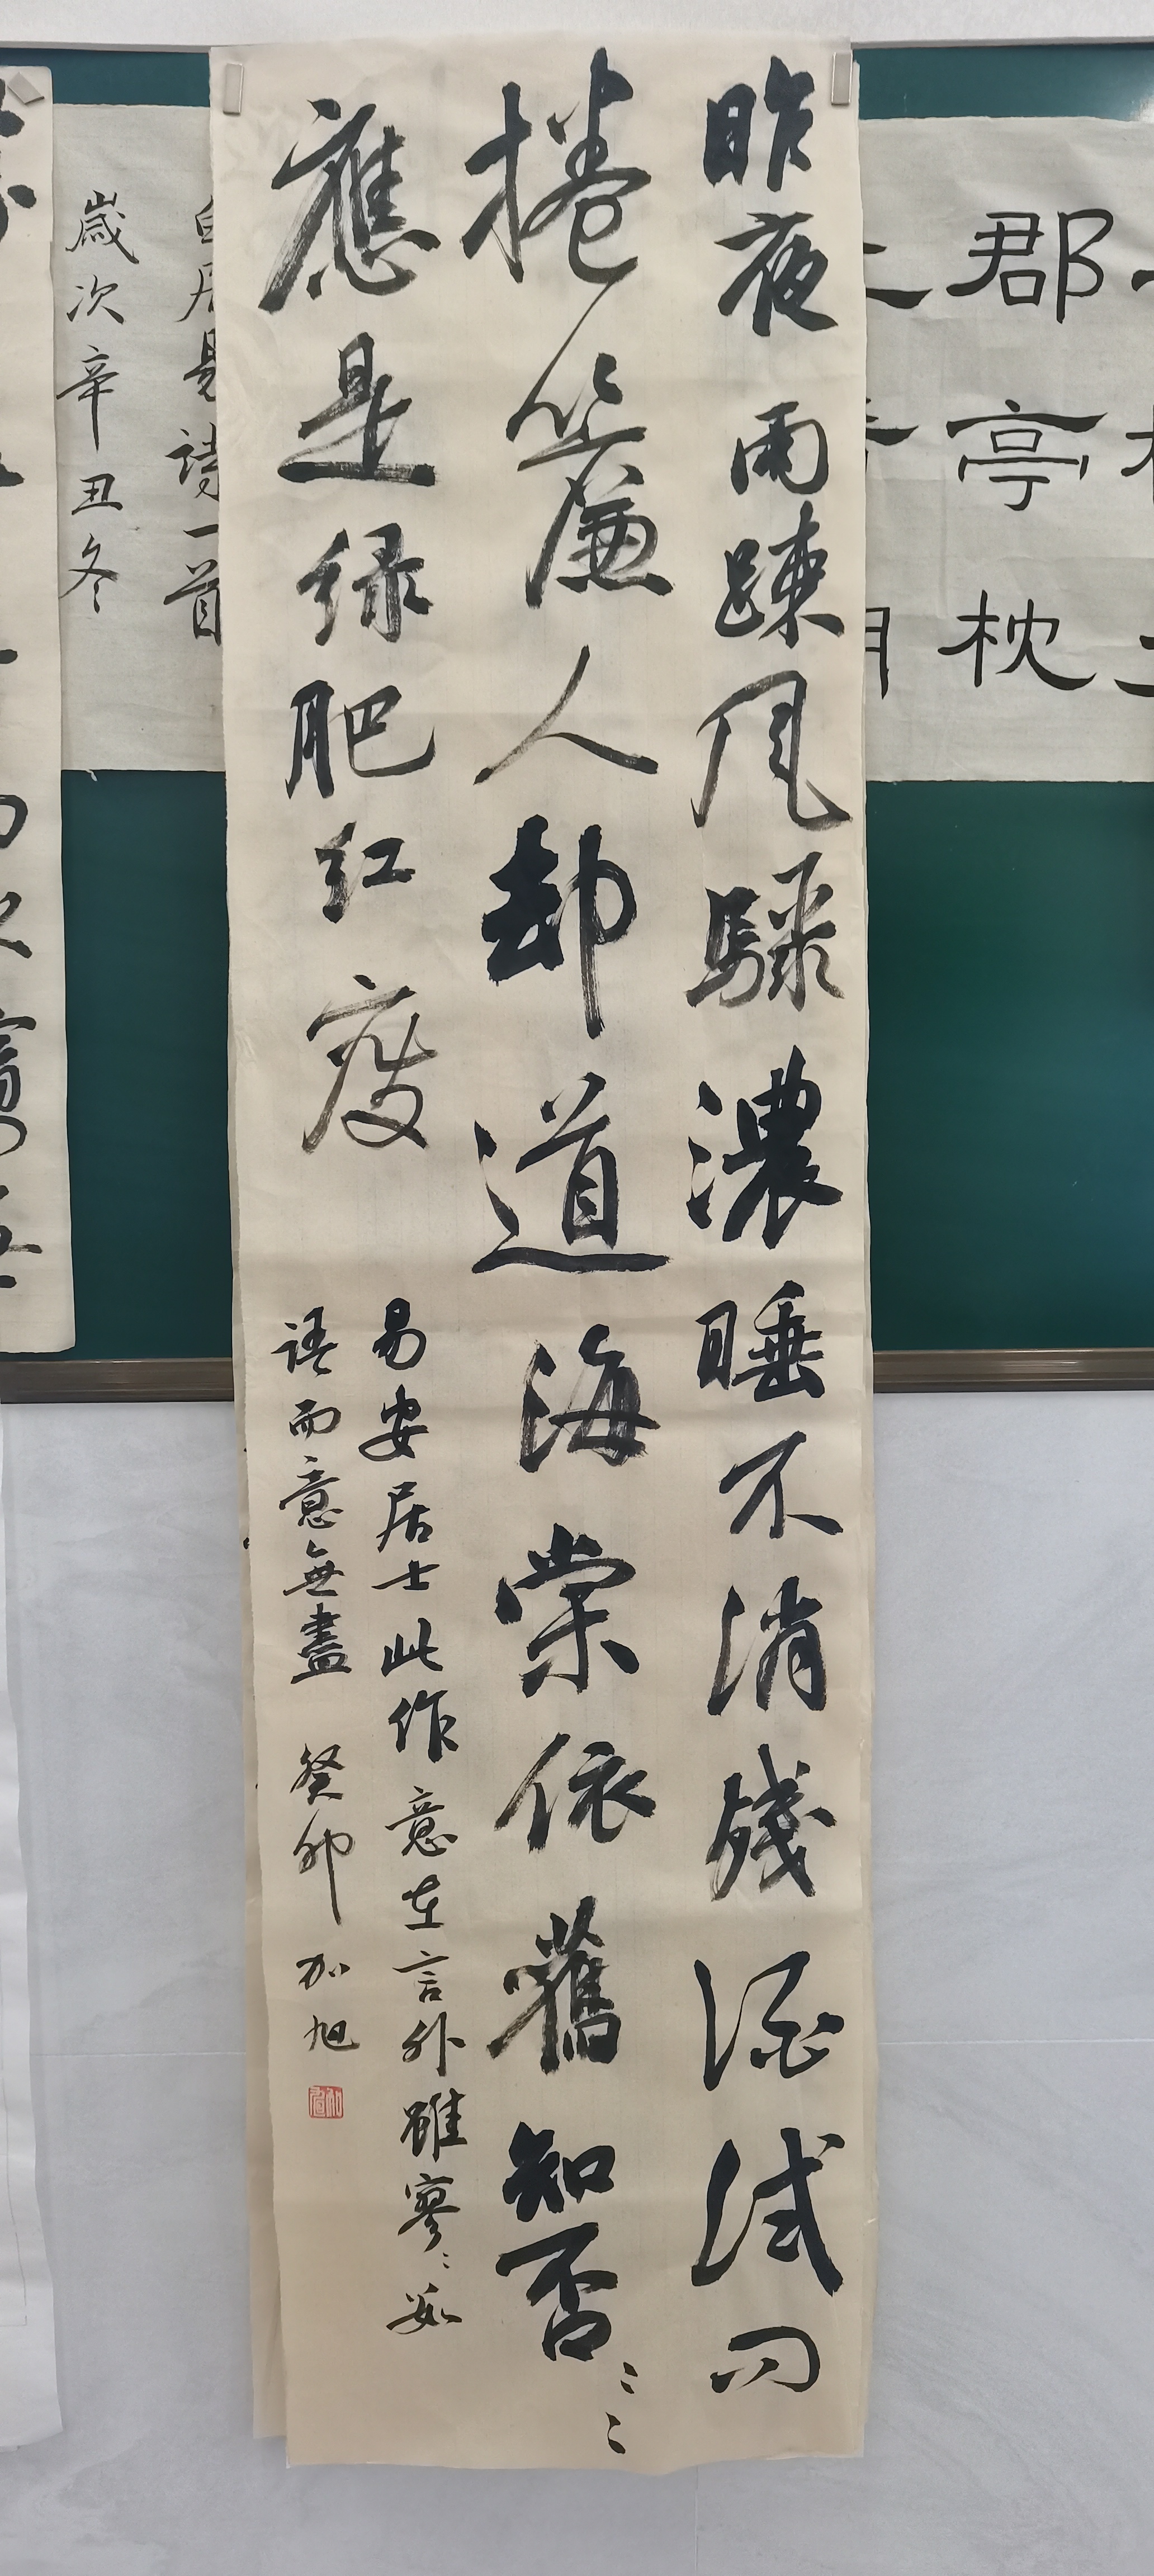 昨夜雨踈风驟濃睡不消殘酒試问
捲簾人却道海棠依舊知否〻〻
應是绿肥红瘦
易安居士此作意在言外雖寥〻數
語而意無盡 癸卯 加旭
郡亭枕
白居易诗一首
歲次辛丑冬